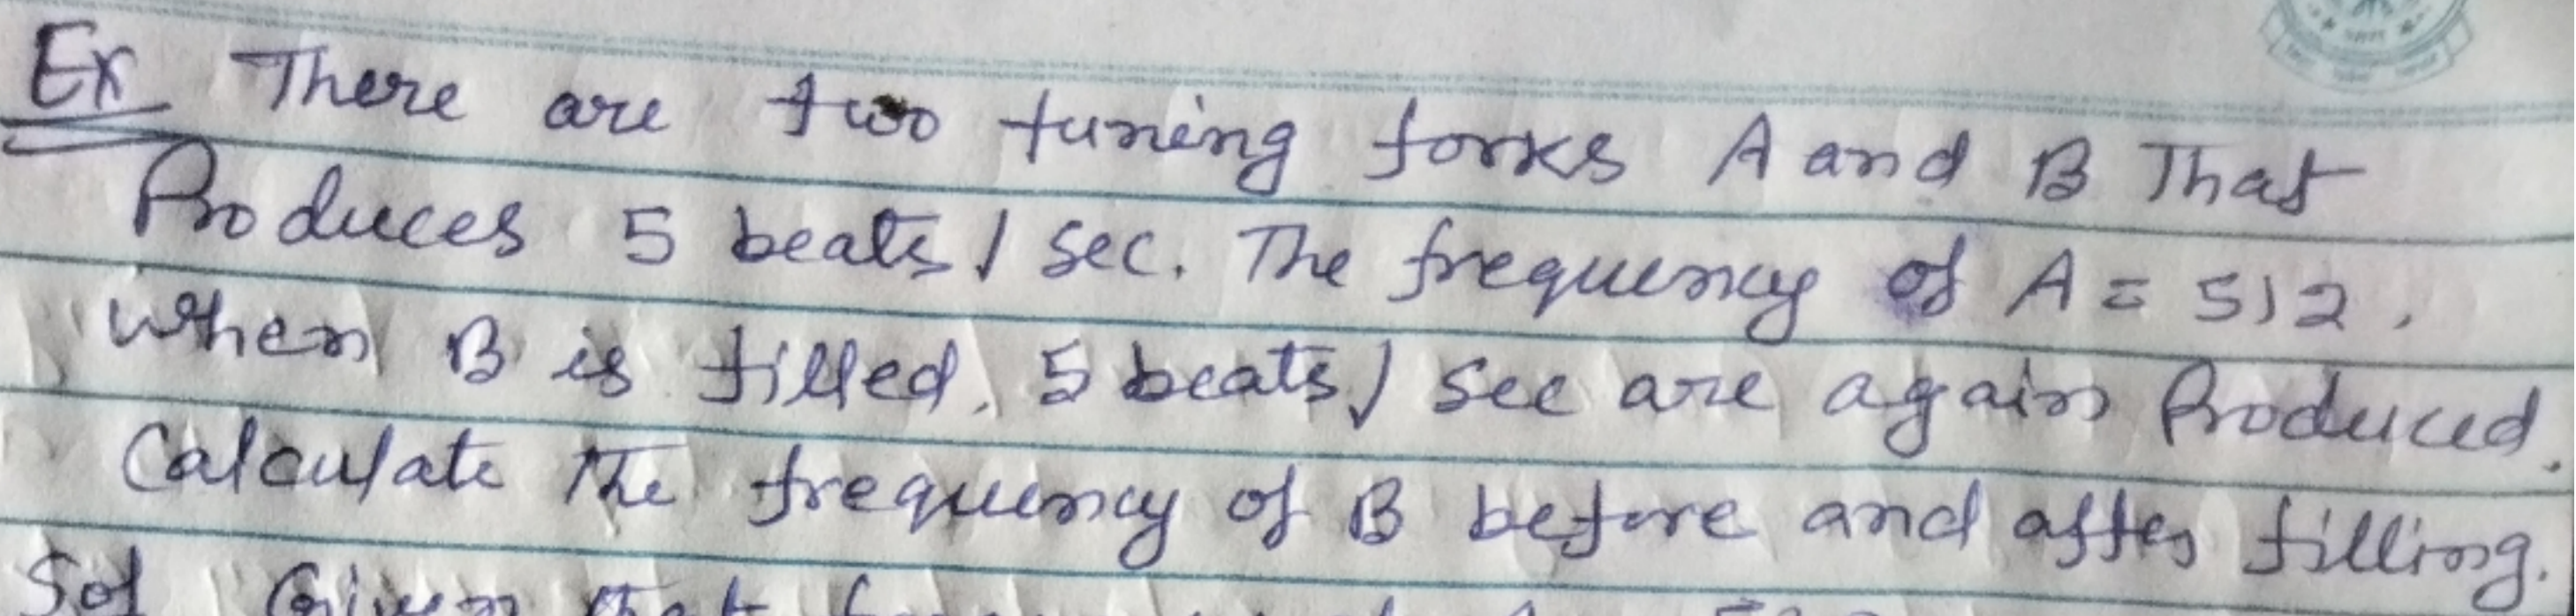 Ex There are two tuning forks A and B That
Produces 5 beats / sec. The frequency of A = 512.
When B is filled, 5 beats / sec are again Produced.
Calculate the frequency of B before and after filling.
Sol Given that